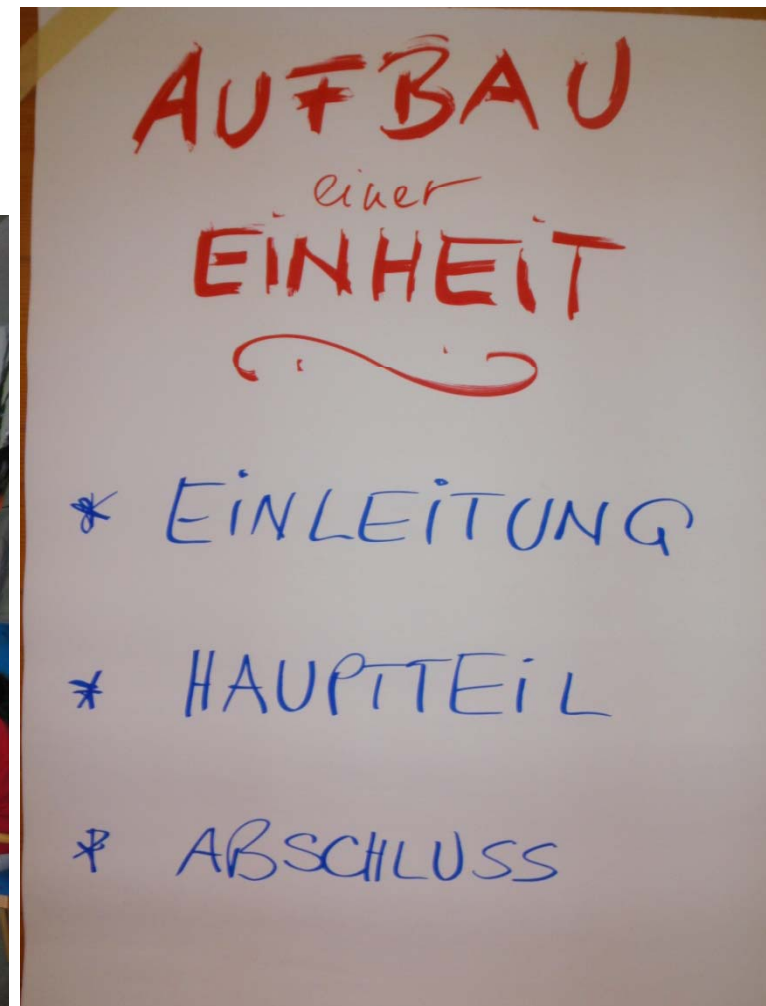 AUFBAU
einer
EiNHEiT
* EiNLEiTUNG
* HAUPTTEiL
* ABSCHLUSS